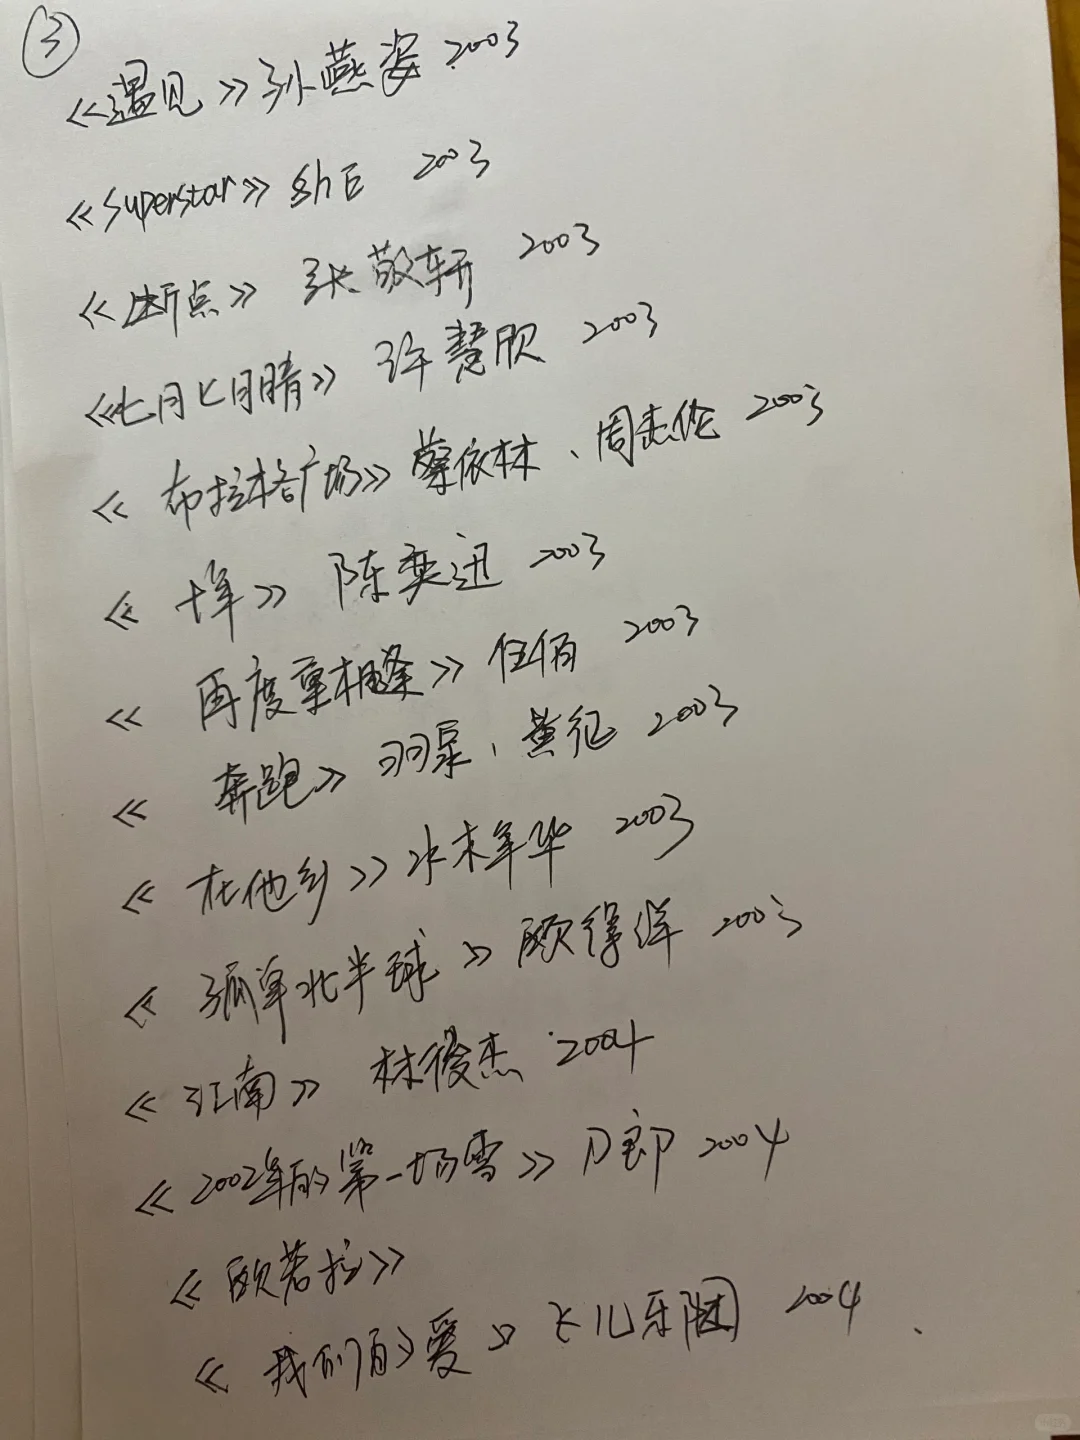 ③
《遇见》孙燕姿 2003
《Superstar》 SHE 2003
《断点》 张敬轩 2003
《七月七日晴》 许慧欣 2003
《布拉格广场》蔡依林、周杰伦 2003
《十年》 陈奕迅 2003
《再度重相逢》伍佰 2003
《奔跑》羽泉、黄征 2003
《在他乡》水木年华 2003
《孤单北半球》欧得洋 2003
《江南》 林俊杰 2004
《2002年的第一场雪》刀郎 2004
《欧若拉》
《我们的爱》飞儿乐团 2004